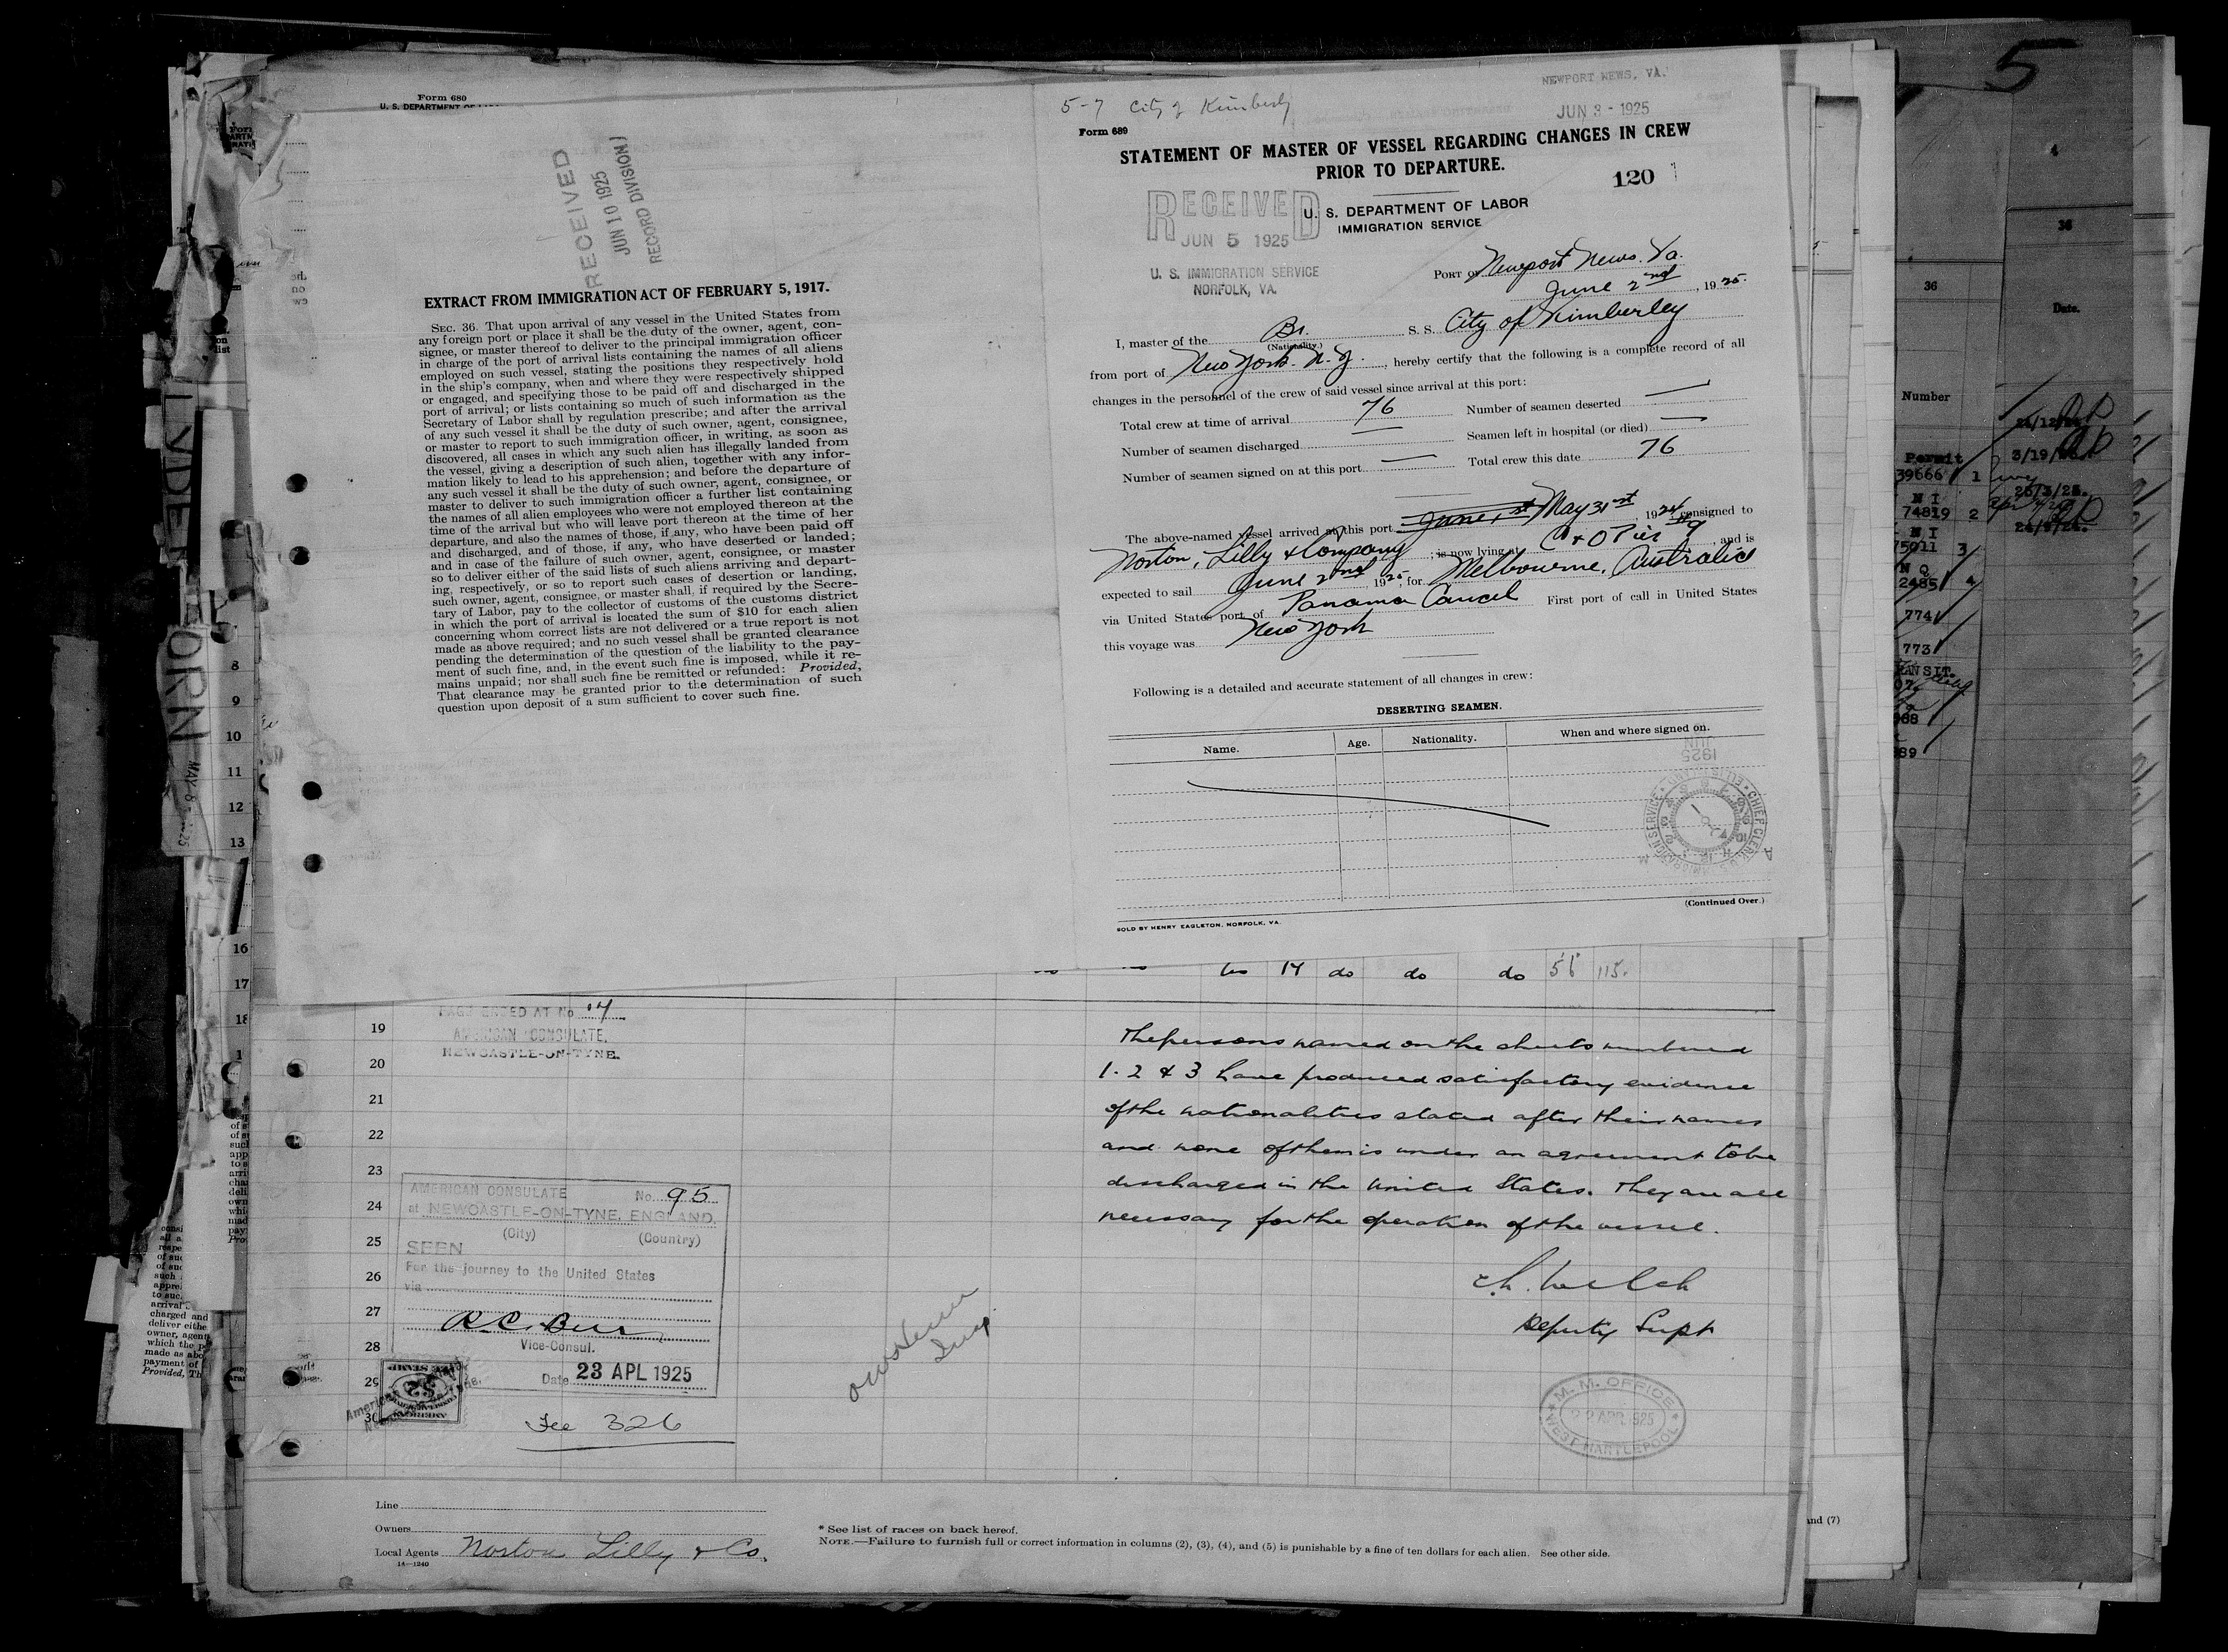 Form 680
U. S. DEPARTMENT OF
RECEIVED
JUN 10 1925
RECORD DIVISION
EXTRACT FROM IMMIGRATION ACT OF FEBRUARY 5, 1917.
SEC. 36. That upon arrival of any vessel in the United States from
any foreign port or place it shall be the duty of the owner, agent, con-
signee, or master thereof to deliver to the principal immigration officer
in charge of the port of arrival lists containing the names of all aliens
employed on such vessel, stating the positions they respectively hold
in the ship's company, when and where they were respectively shipped
or engaged, and specifying those to be paid off and discharged in the
port of arrival; or lists containing so much of such information as the
Secretary of Labor shall by regulation prescribe; and after the arrival
of any such vessel it shall be the duty of such owner, agent, consignee,
or master to report to such immigration officer, in writing, as soon as
discovered, all cases in which any such alien has illegally landed from
the vessel, giving a description of such alien, together with any infor-
mation likely to lead to his apprehension; and before the departure of
any such vessel it shall be the duty of such owner, agent, consignee, or
master to deliver to such immigration officer a further list containing
the names of all alien employees who were not employed thereon at the
time of the arrival but who will leave port thereon at the time of her
departure, and also the names of those, if any, who have been paid off
and discharged, and of those, if any, who have deserted or landed;
and in case of the failure of such owner, agent, consignee, or master
so to deliver either of the said lists of such aliens arriving and depart-
ing, respectively, or so to report such cases of desertion or landing,
such owner, agent, consignee, or master shall, if required by the Secre-
tary of Labor, pay to the collector of customs of the customs district
in which the port of arrival is located the sum of $10 for each alien
concerning whom correct lists are not delivered or a true report is not
made as above required; and no such vessel shall be granted clearance
pending the determination of the question of the liability to the pay-
ment of such fine, and, in the event such fine is imposed, while it re-
mains unpaid; nor shall such fine be remitted or refunded: Provided,
That clearance may be granted prior to the determination of such
question upon deposit of a sum sufficient to cover such fine.
NEWPORT NEWS, VA.
JUN 3 - 1925
5-7 City of Kimberly
Form 689
STATEMENT OF MASTER OF VESSEL REGARDING CHANGES IN CREW
PRIOR TO DEPARTURE.
120
RECEIVED
JUN 5 1925
U. S. IMMIGRATION SERVICE
NORFOLK, VA.
U. S. DEPARTMENT OF LABOR
IMMIGRATION SERVICE
PORT OF Newport News. Va.
June 2nd, 1925.
I, master of the Br. S. S. City of Kimberley
(Nationality.)
from port of New York. N. Y., hereby certify that the following is a complete record of all
changes in the personnel of the crew of said vessel since arrival at this port:
Total crew at time of arrival 76 Number of seamen deserted —
Number of seamen discharged — Seamen left in hospital (or died) —
Number of seamen signed on at this port — Total crew this date 76
The above-named vessel arrived at this port June 1st May 31st, 192 consigned to
Norton, Lilly & Company; is now lying at C & O Pier 9, and is
expected to sail June 2nd 1925, for Melbourne, Australia
via United States port of Panama Canal First port of call in United States
this voyage was New York
Following is a detailed and accurate statement of all changes in crew:
DESERTING SEAMEN.
Name. Age. Nationality. When and where signed on.
JUN
1925
CHIEF CLERK U.S. IMMIGRATION SERVICE ELLIS ISLAND
(Continued Over.)
SOLD BY HENRY EAGLETON, NORFOLK, VA.
17 do do do 5'6 115.
PAGE ENDED AT No 17
AMERICAN CONSULATE,
NEWCASTLE-ON-TYNE.
The persons named on the sheets numbered
1. 2 & 3 have produced satisfactory evidence
of the nationalities stated after their names
and none of them is under an agreement to be
discharged in the United States. They are all
necessary for the operation of the vessel.
Welch
Deputy Supt
M. M. OFFICE
22 APR 1925
WEST HARTLEPOOL
AMERICAN CONSULATE No. 95
at NEWCASTLE-ON-TYNE, ENGLAND.
(City) (Country)
SEEN
For the journey to the United States
via
Vice-Consul.
Date 23 APL 1925
Fee 326
7
8
9
10
11
12
13
16
17
18
19
20
21
22
23
24
25
26
27
28
29
30
MAY 8 1925
Line
Owners
Local Agents Norton Lilly & Co.
14—1240
* See list of races on back hereof.
NOTE.—Failure to furnish full or correct information in columns (2), (3), (4), and (5) is punishable by a fine of ten dollars for each alien. See other side.
and (7)
5
4
36
36
Date.
Number
Permit
39666 1
N I
74819 2
N I
75011 3
N Q
2485 4
774
773
TRANSIT.
3/19/
26/3/25.